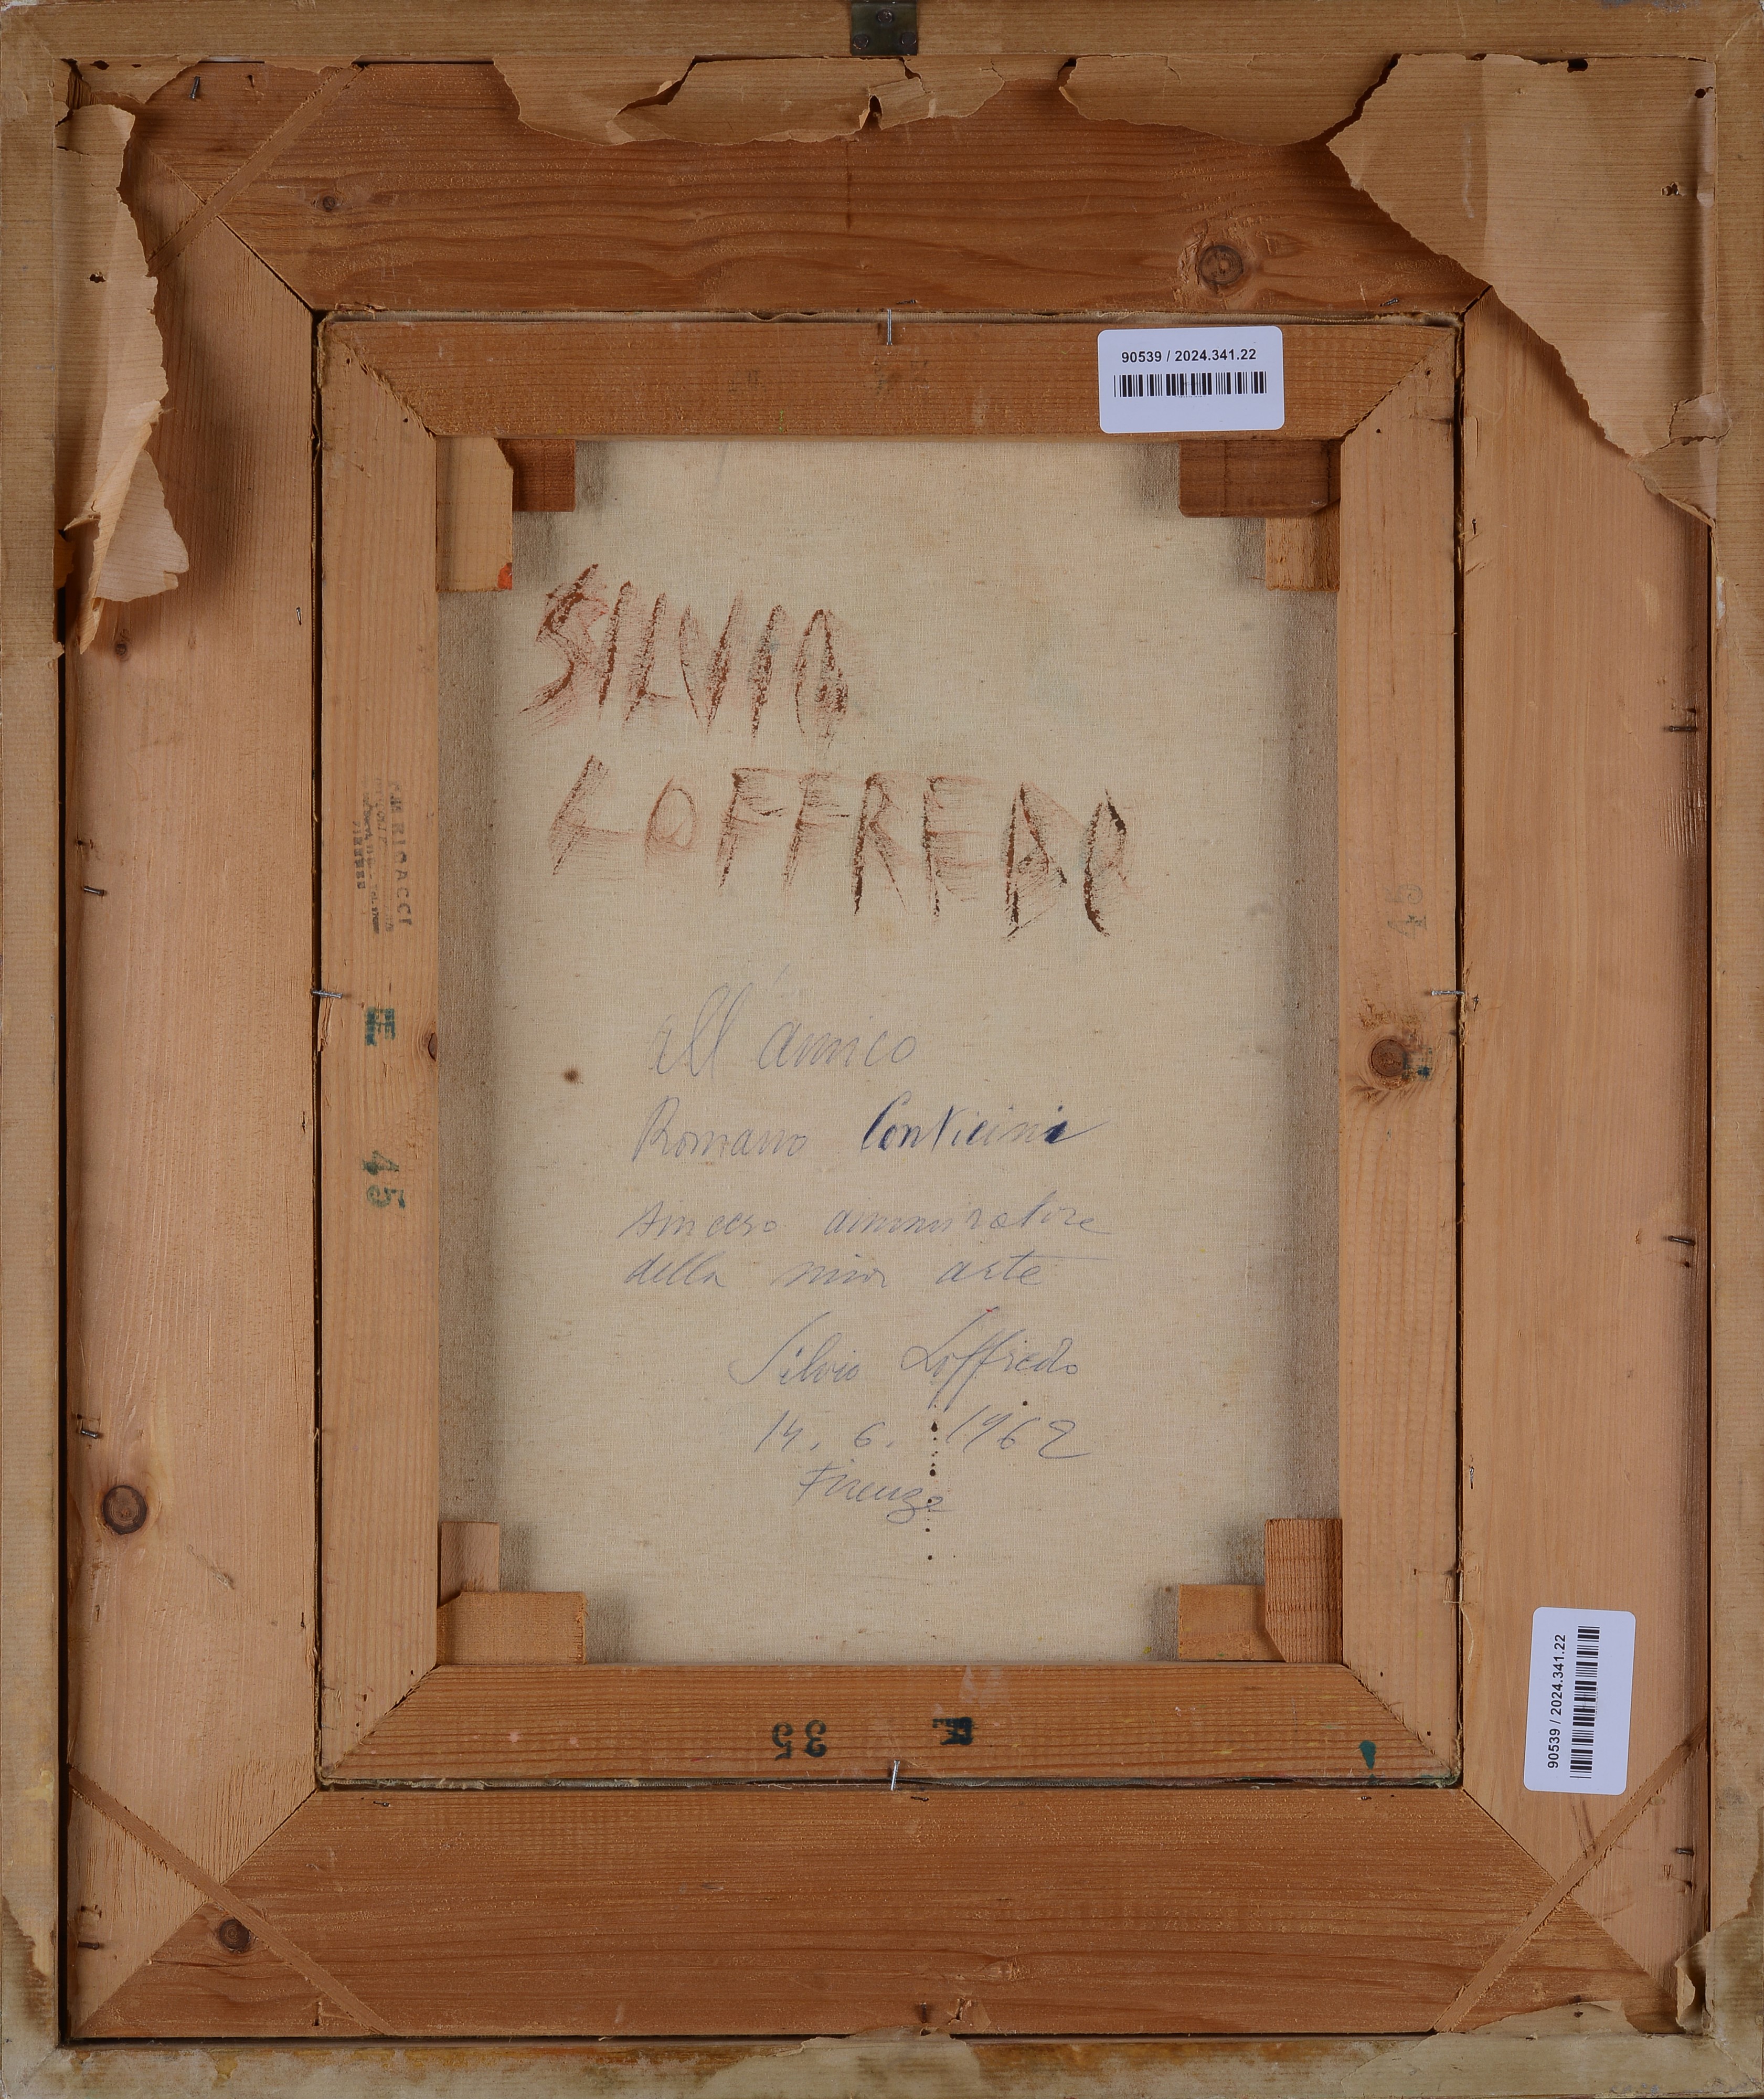 90539 / 2024.341.22
SILVIO
LOFFREDO
RIGACCI
FIRENZE
45
45
all'amico
Romano Conticini
sincero ammiratore
della mia arte
Silvio Loffredo
14. 6. 1962
Firenze
35
90539 / 2024.341.22